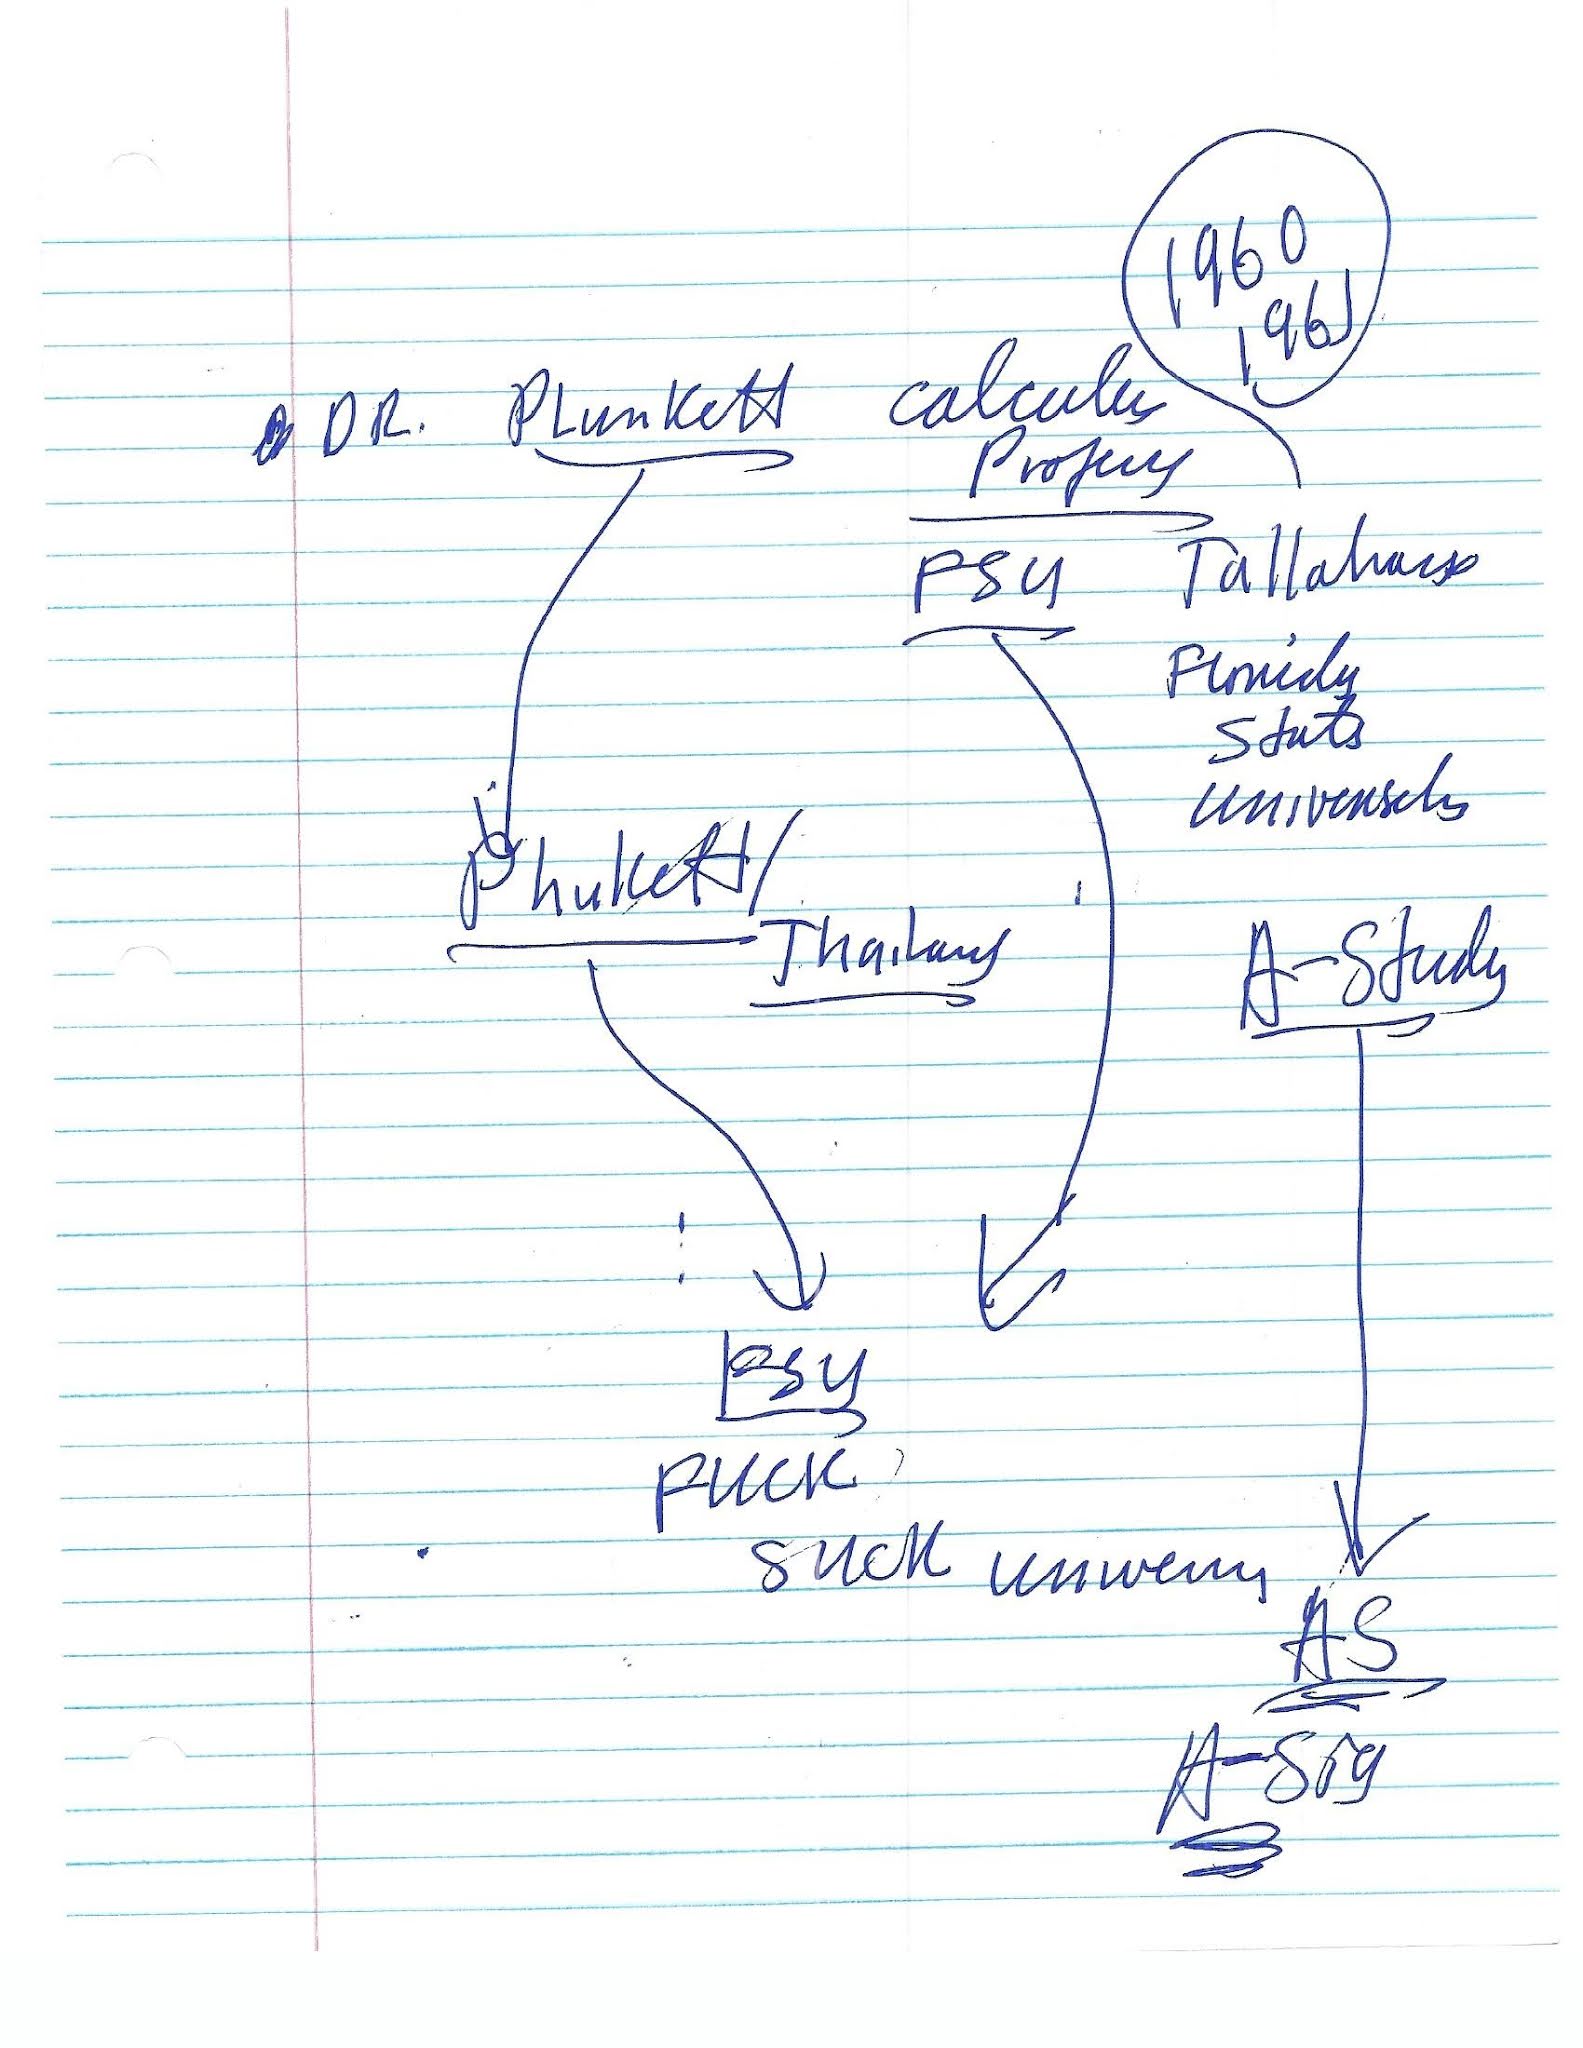 1960
1961
DR. Plunkett calculus
Profess
FSU Tallahasse
Florida
State
University
Phukett/
Thailand
A-Study
FSU
FUCK
SUCK University
AS
A-Sig